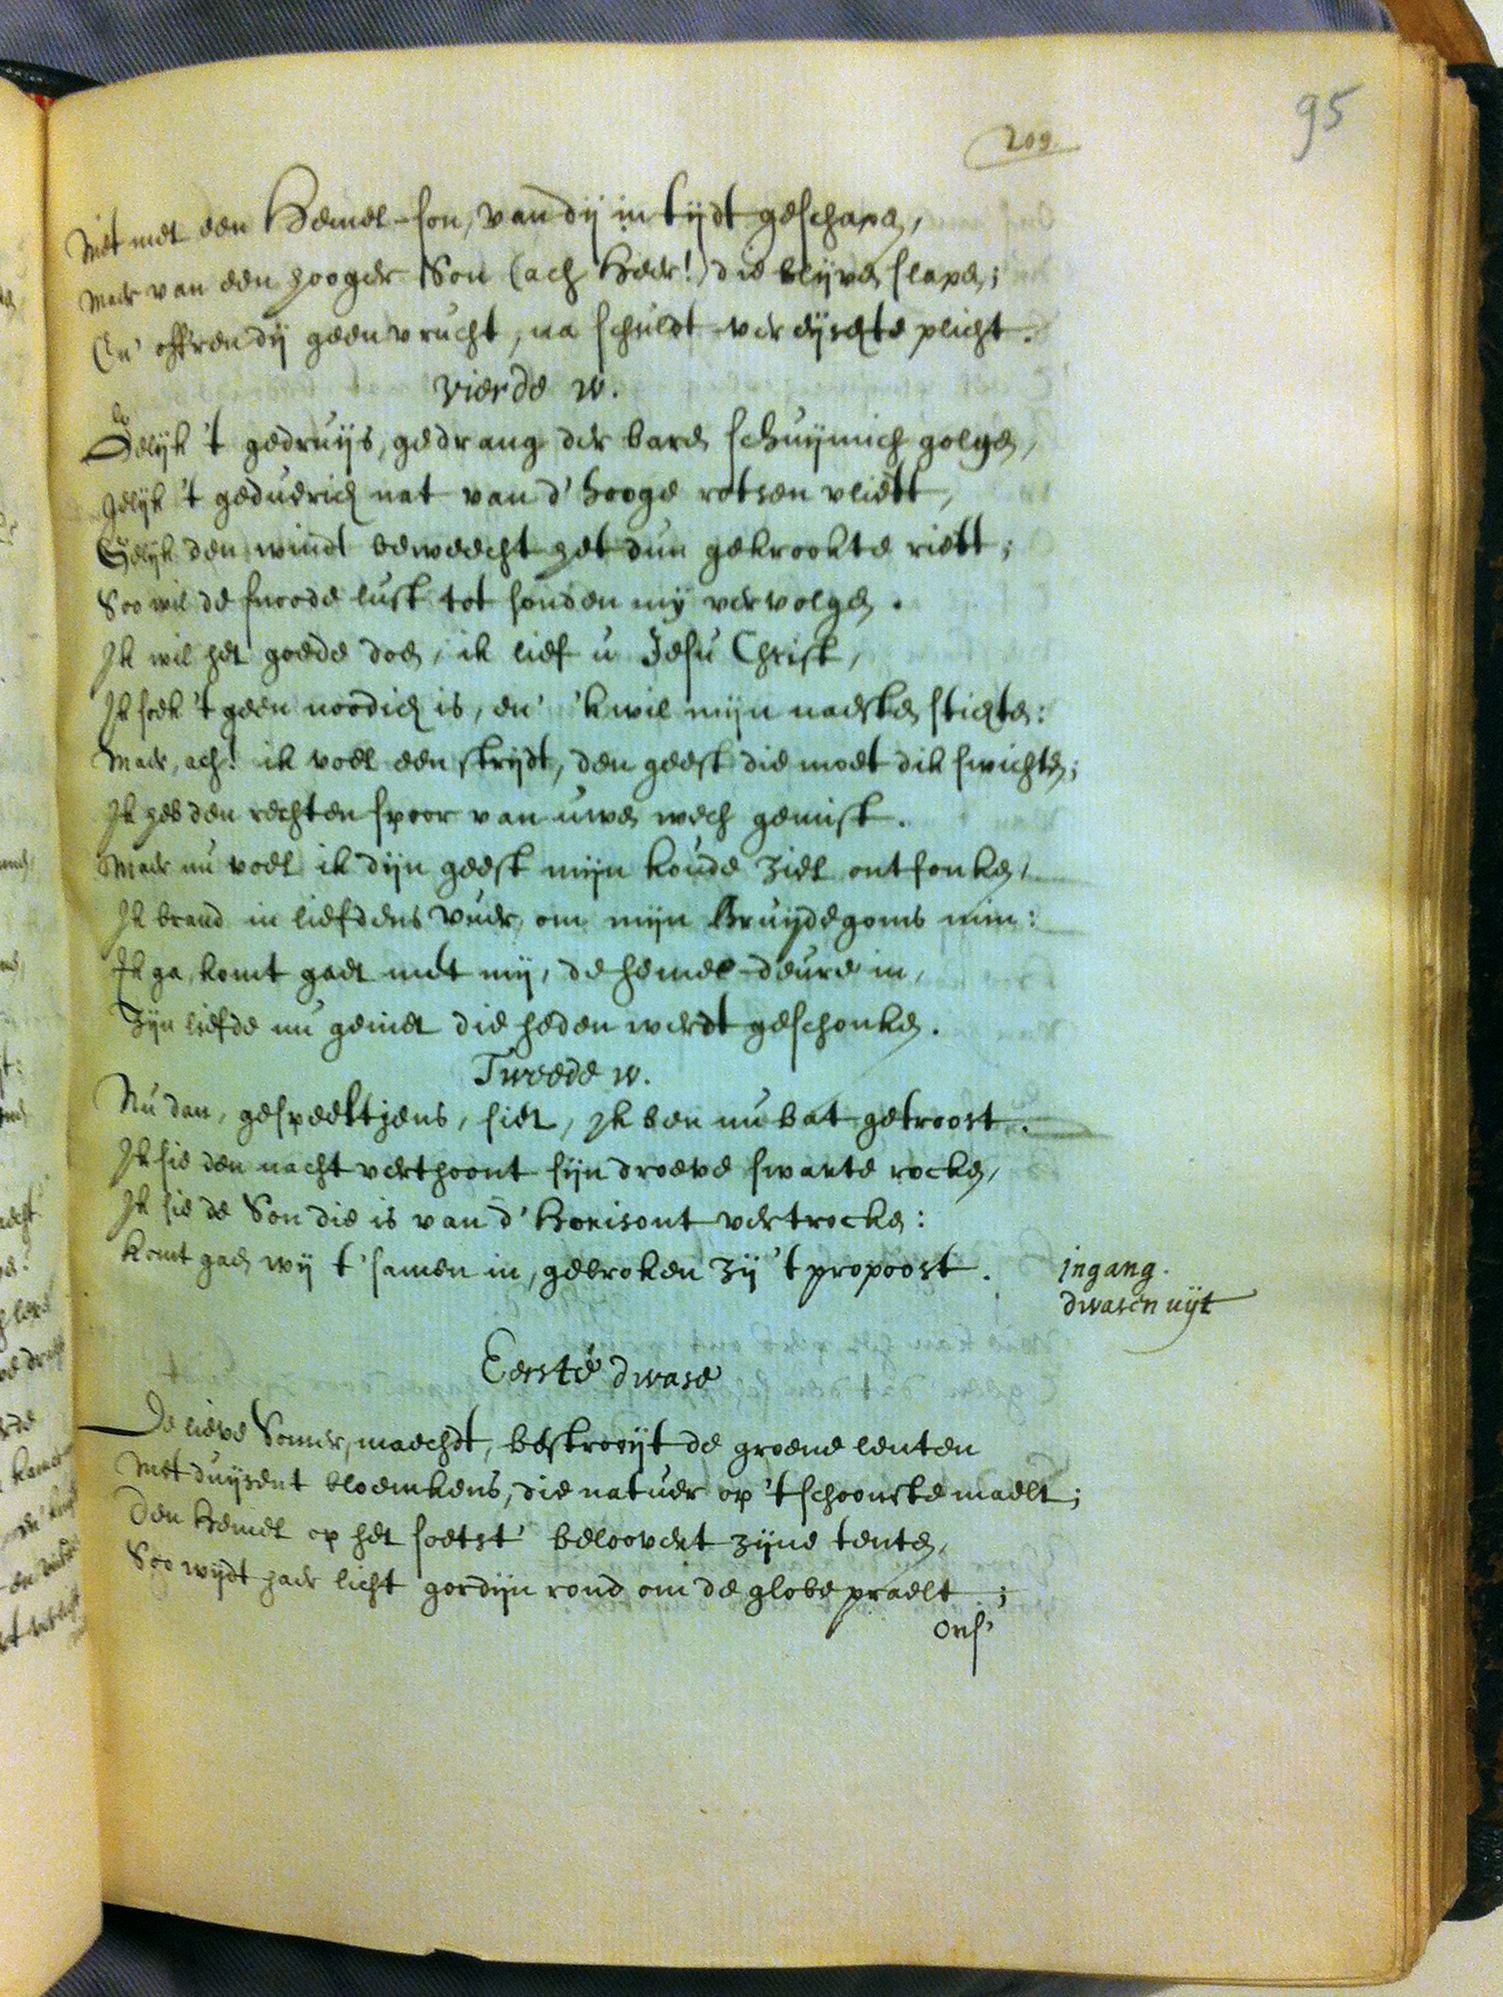 95
209
Niet met een Hemel-son, van dij in tijdt geschapen,
Maer van een hooger Son (ach Heer!) die blijven slapen;
En' offren dij geen vrucht, na schuldt vereijschte plicht.
Vierde w.
Gelijk 't gedruijs, gedrang der baren schuijmich golgen,
Gelijk 't geduerich nat van d' hooge rotsen vliett,
Gelijk den windt beweecht het dun gekrookte riett;
Soo wil de snoode lust tot sonden mij vervolgen.
Ik wil het goede doen, ik lief u Jesu Christ,
Ik soek 't geen noodich is, en' 'k wil mijn naesten stichten:
Maer, ach! ik voel een strijdt, den geest die moet dik swichten;
Ik heb den rechten spoor van uwen wech gemist.
Maer nu voel ik dijn geest mijn koude ziel ontfonken,
Ik brand in liefdens vuer, om mijn Bruijdegoms min:
Ik ga, komt gaet met mij, de hemel-deure in,
Zijn liefde nu geniet die heden werdt geschonken.
Tweede w.
Nu dan, gespeeltjens, siet, Ik ben nu bat getroost.
Ik sie den nacht verthoont sijn droeve swarte rocken,
Ik sie de Son die is van d' Horisont vertrocken:
Komt gaen wij t' samen in, gebroken zij 't propoost.
ingang.
dwasen uijt
Eerste dwase
De lieve Somer, maechdt, bestrooijt de groene lenten
Met duijsent bloemkens, die natuer op 't schoonste maelt;
Den Hemel op het soetst' beloovert zijne tenten,
Soo wijdt haer licht gordijn rond om de globe praelt;
Ons'